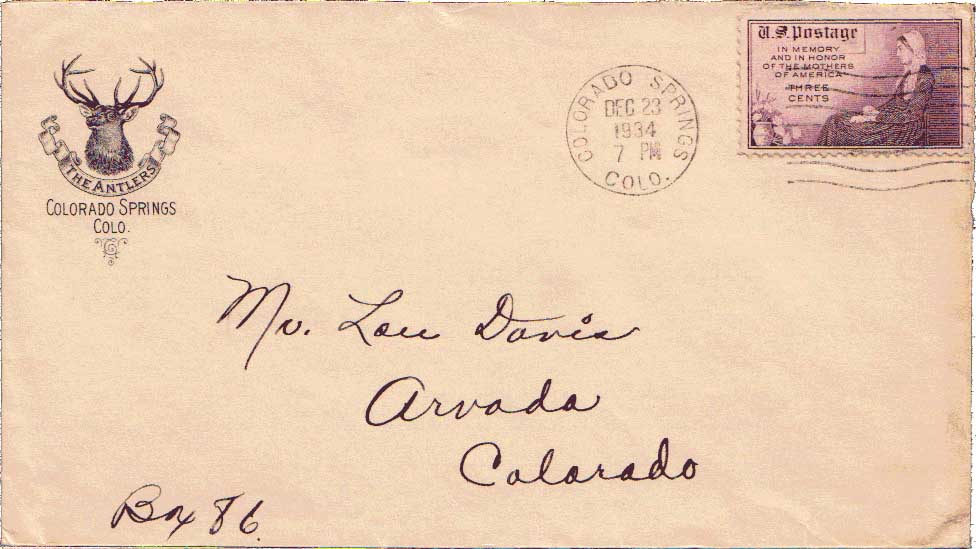 THE ANTLERS
COLORADO SPRINGS
COLO.
COLORADO SPRINGS
DEC 23
1934
7 PM
COLO.
U.S. Postage
IN MEMORY
AND IN HONOR
OF THE MOTHERS
OF AMERICA
THREE
CENTS
Mr. Lou Davis
Arvada
Colorado
Box 86.